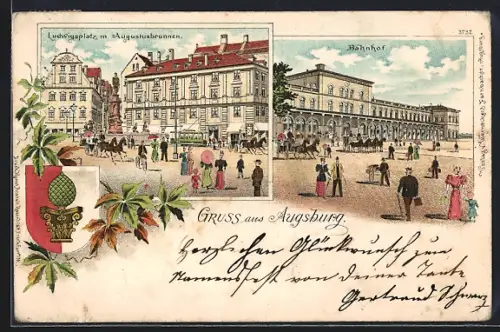 Ludwigsplatz m. Augustusbrunnen.
Bahnhof.
GRUSS aus Augsburg.
Herzlichen Glückwunsch zum
Namensfest von deiner Tante
Gertraud Schwarz